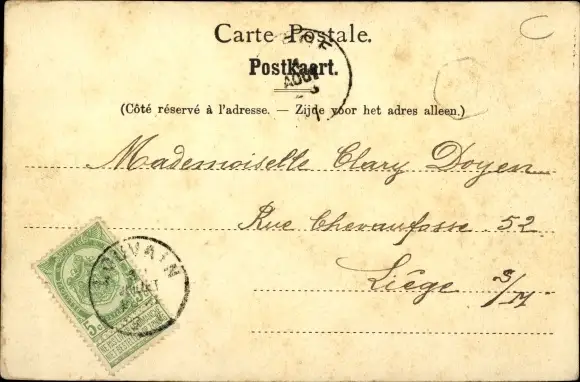 Carte Postale.
Postkaart.
(Côté réservé à l'adresse. — Zijde voor het adres alleen.)
Mademoiselle Clary Doyen
Rue Chevaufosse. 52
Liége S/M
LOUVAIN
5
AOUT